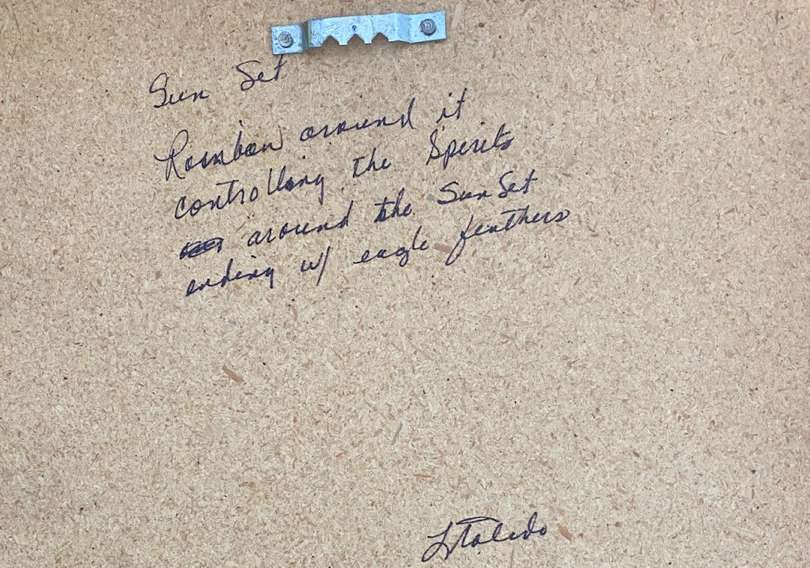 Sun Set
Rainbow around it
controlling the Spirits
around the Sun Set
ending w/ eagle feathers
L Toledo